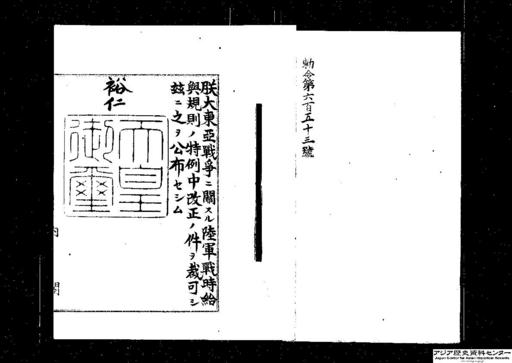 勅令第六百五十三號
朕大東亞戰爭ニ關スル陸軍戰時給
與規則ノ特例中改正ノ件ヲ裁可シ
玆ニ之ヲ公布セシム
裕仁
天皇御璽
内閣
アジア歴史資料センター
Japan Center for Asian Historical Records